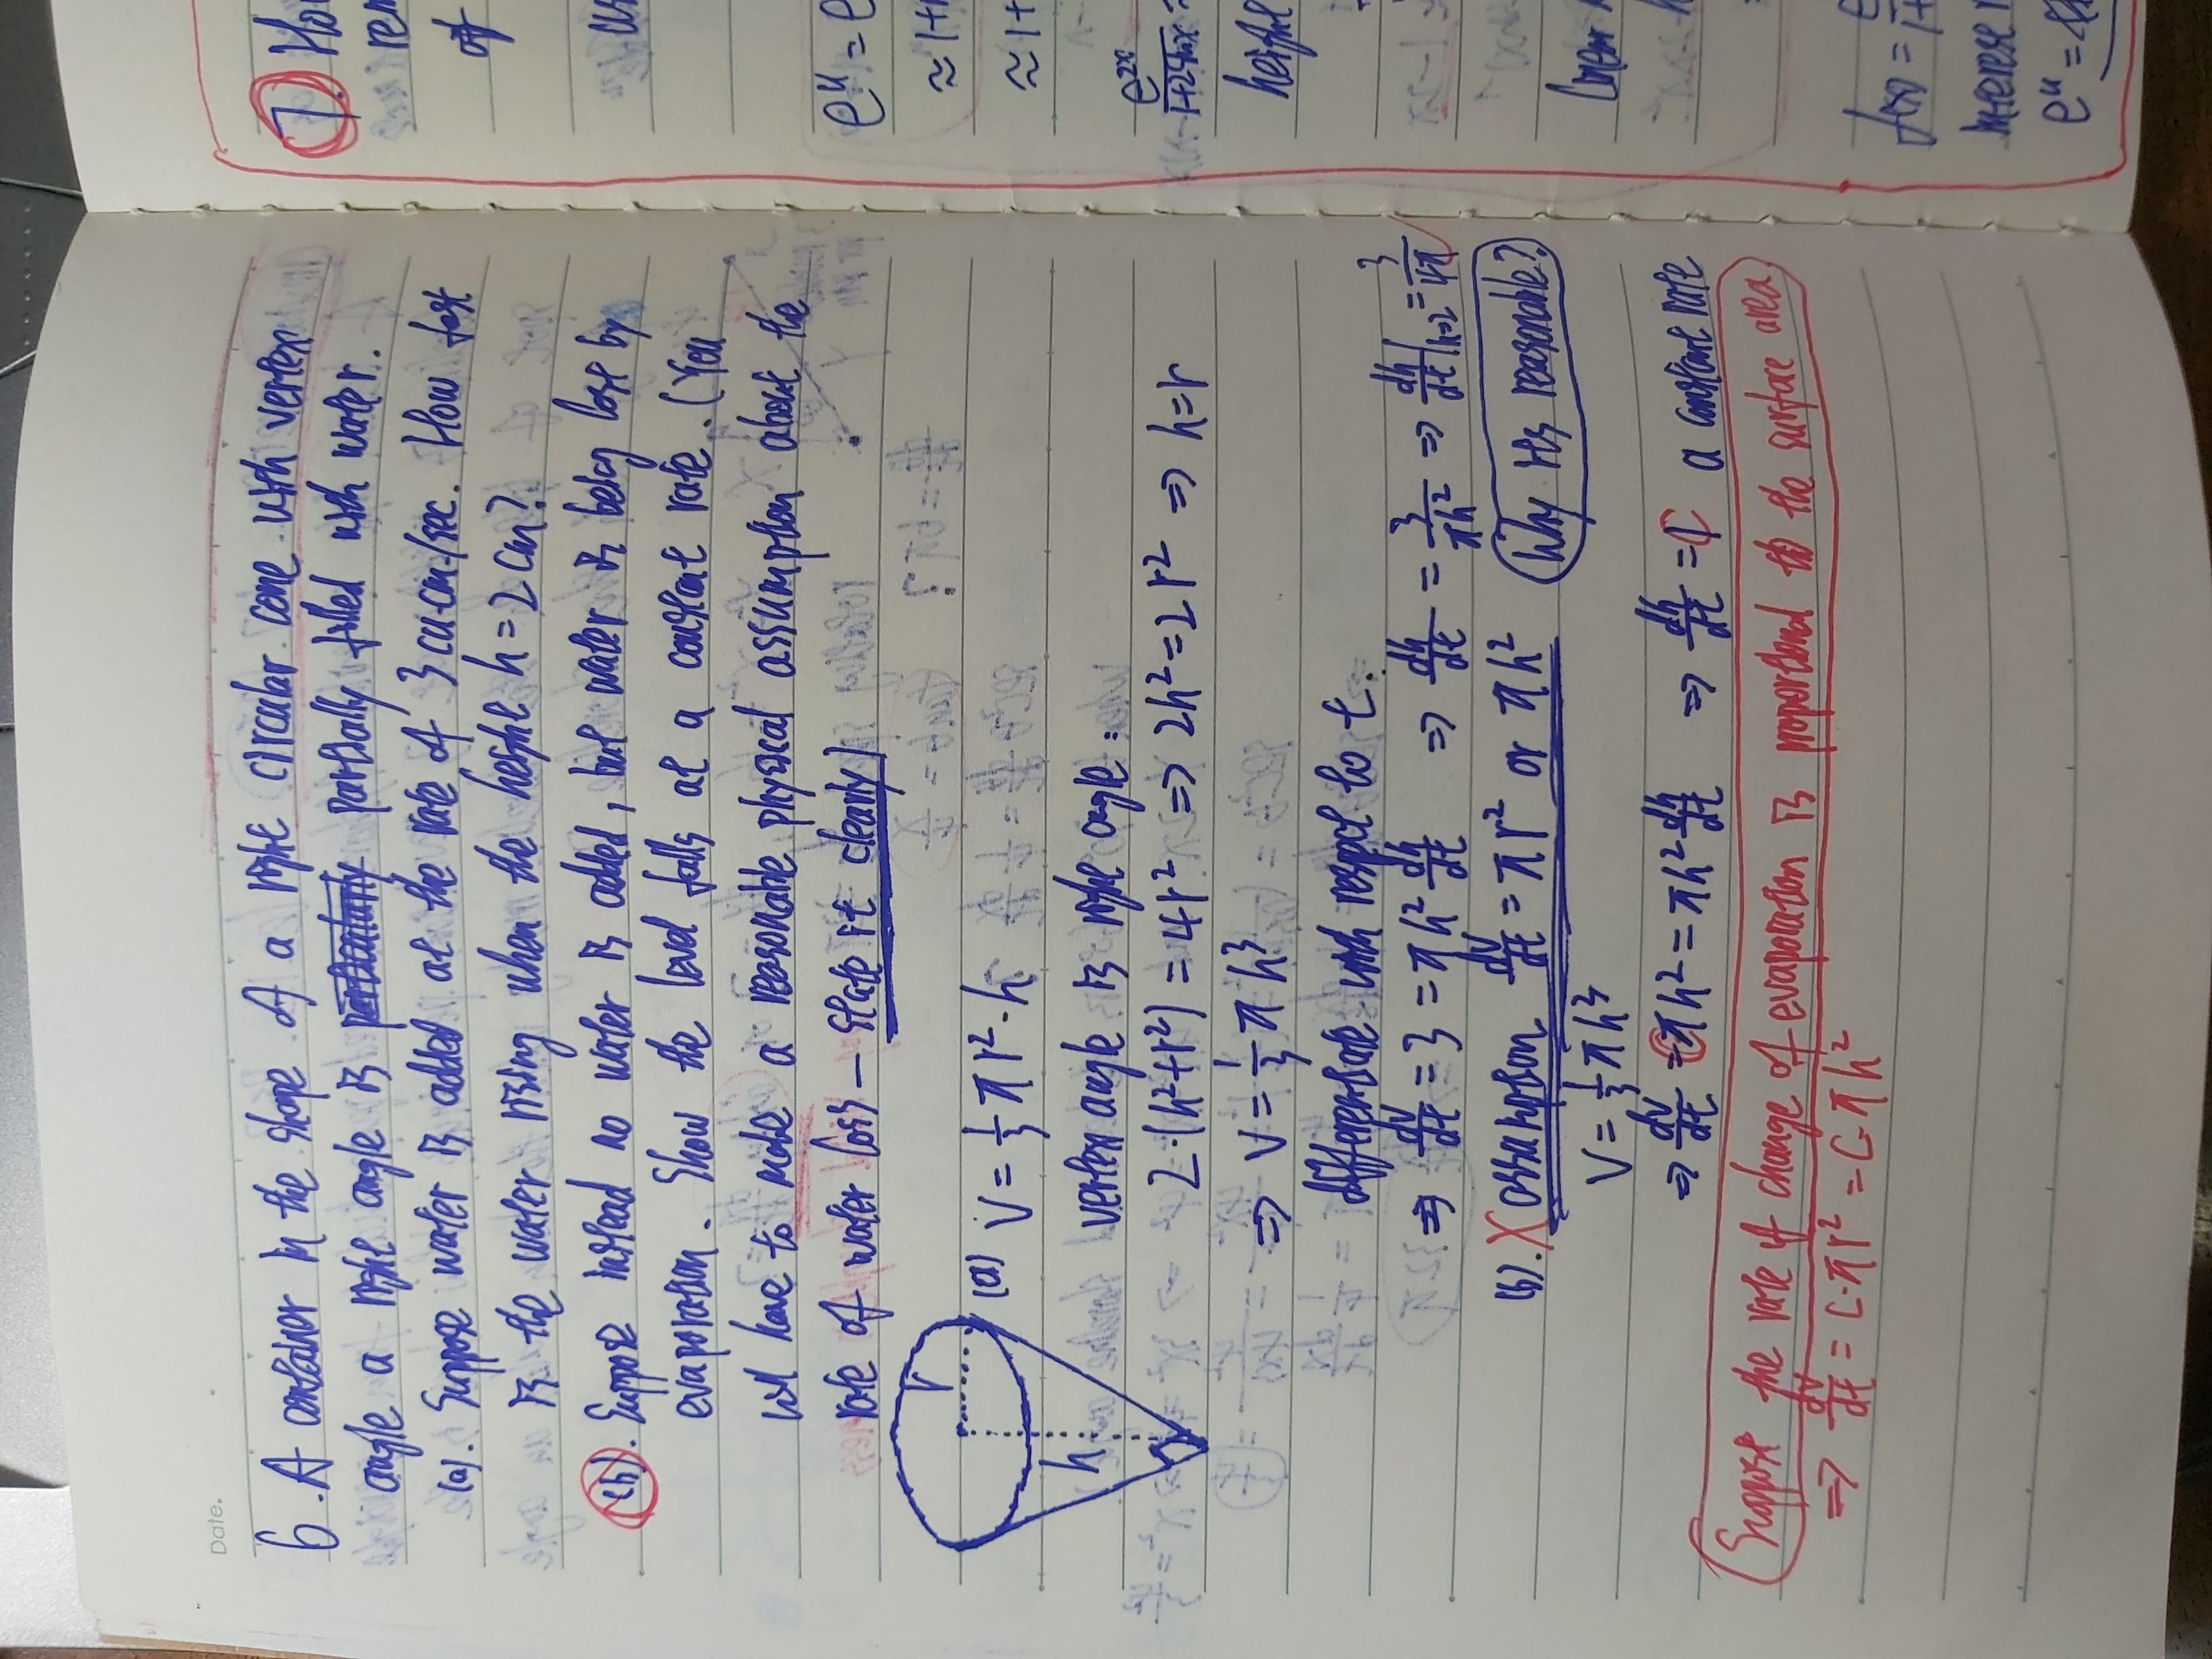 Date.
6. A container in the shape of a right circular cone with vertex
angle a right angle is partially filled with water.
(a). Suppose water is added at the rate of 3 cu.cm./sec. How fast
is the water rising when the height h = 2 cm?
(b). Suppose instead no water is added, but water is being lost by
evaporation. Show the level falls at a constant rate. (You
will have to make a reasonable physical assumption about the
rate of water loss — state it clearly)
r
h
(a) V = 1/3 π r² · h
vertex angle is right angle:
2·(h²+r²) = 4r² ⇒ 2h² = 2r² ⇒ h=r
⇒ V = 1/3 π h³
differentiate with respect to t.
⇒ dV/dt = 3 = π h² dh/dt ⇒ dh/dt = 3/πh² ⇒ dh/dt|h=2 = 3/4π
(b). X assumption dV/dt = π r² or π h² Why it's reasonable?
V = 1/3 π h³
⇒ dV/dt = C π h² = π h² dh/dt ⇒ dh/dt = C a constant rate
Suppose the rate of change of evaporation is proportional to the surface area
⇒ dV/dt = C·π r² = C·π h²
7. Ho
rem
of
us
e^u = e
≈ 1+
≈ 1+
e^2x/1+2sinx ≈
height
Linear
f(x) = e/1+
interest
e^u =